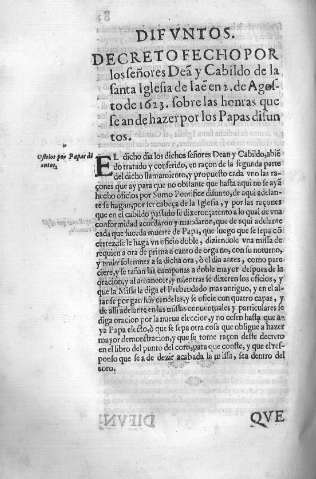 DIFVNTOS.
DECRETO FECHO POR
los señores Deã y Cabildo de la
santa Iglesia de Iaẽ en 2. de Agos-
to de 1623. sobre las honras que
se an de hazer por los Papas difun
tos.
Oficios por Papas di
funtos.
EL dicho dia los dichos señores Dean y Cabildo, abiẽ
do tratado y conferido, en raçon de la segunda parte
del dicho llamamiento, y propuesto cada vno las ra-
çones que ay para que no obstante que hasta aqui no se ayã
hecho oficios por Sumo Pontifice difunto, de aqui adelan-
te se hagan por ser cabeça de la Iglesia, y por las raçones
que en el cabildo passado se dixeron; atento a lo qual de vna
conformidad acordaron y mandaron, que de aqui adelante
cada que suceda muerte de Papa, que luego que se sepa cõ
certeza se le haga vn oficio doble, diziendole vna missa de
requien a ora de prima a canto de organo, con su noturno,
y laudes solemnes a la dicha ora, ò el dia antes, como pare-
ciere, y se tañan las campanas a doble mayor despues de la
oracion, y al amanecer, y mientras se dixeren los oficios, y
que la Missa le diga el Prebendado mas antiguo, y en el al-
tar se pongan seys candelas, y se oficie con quatro capas, y
de alli adelante en las missas conventuales y particulares se
diga oracion por la nueva eleccion, y no cesen hasta que an-
ya Papa electo, ò que se sepa otra cosa que obligue a hazer
mayor demostracion, y que se tome raçon deste decreto
en el libro del punto del coro, para que conste, y que el res-
ponso que se a de dezir acabada la missa, sea dentro del
coro.
QVE